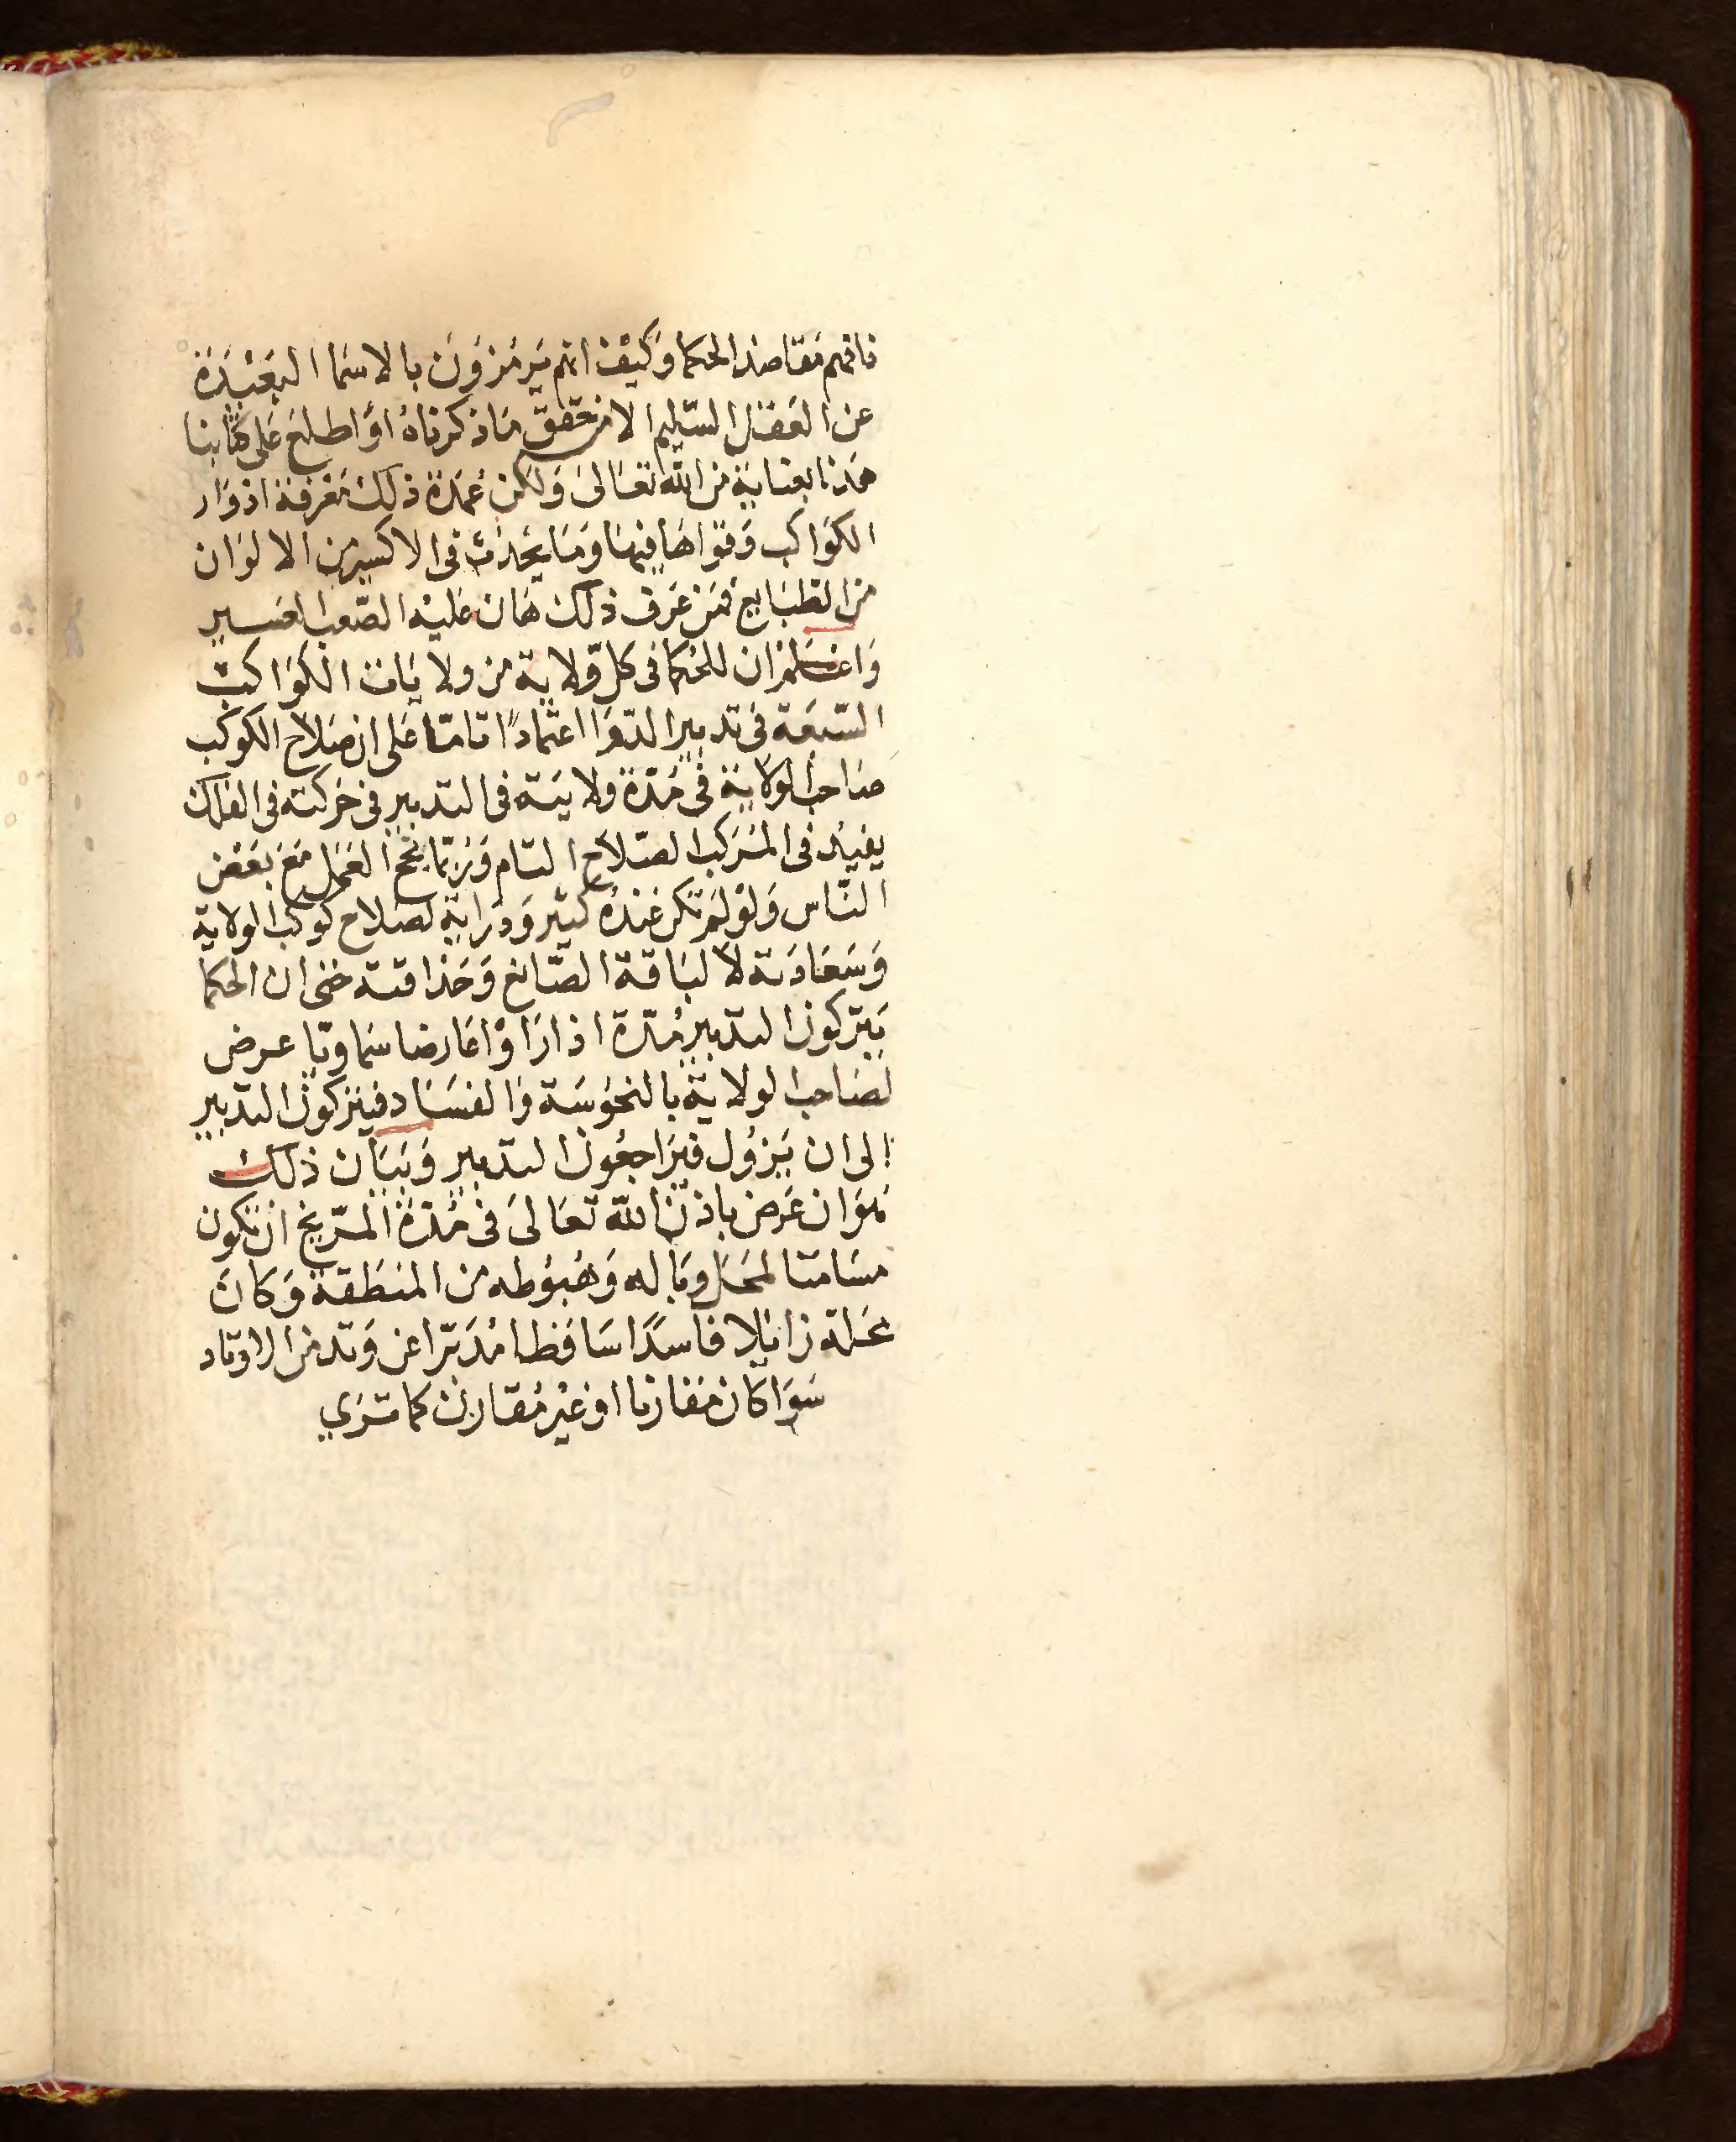 فافهم مقاصد الحكما وكيف انهم يرمزون بالاسما البعيدة
عن العقل السليم الا من تحقق ما ذكرناه او اطلع على كتابنا
هذا بعناية من الله تعالى ولكن عمدة ذلك معرفة ادوار
الكواكب وقواها فيها وما يحدث فى الاكسير من الالوان
من الطبايع فمن عرف ذلك هان عليه الصعب العسير
واعلم ان للحكما فى كل ولاية من ولايات الكواكب
السبعة فى تدبير الدوا اعتمادا تاما على ان صلاح الكوكب
صاحب الولاية فى مدة ولايته فى التدبير فى حركته فى الفلك
يفيد فى المركب الصلاح التام وربما نجح العمل مع بعض
الناس ولو لم تكن عنده كثير ودراية لصلاح كوكب الولاية
وسعادته لا لباقة الصانع وحذاقته حتى ان الحكما
يتركون التدبير مدة اذا راوا عارضا سماويا عرض
لصاحب الولاية بالنحوسة والفساد فيتركون التدبير
الى ان يزول فيراجعون التدبير وبيان ذلك
هو ان عرض باذن الله تعالى فى مدة المريخ ان تكون
مسامتا لمحل وباله وهبوطه من المنطقة وكان
محله زايلا فاسدا ساقطا مدبرا عن وتد من الاوتاد
سوا كان مقارنا او غير مقارن كما ترى